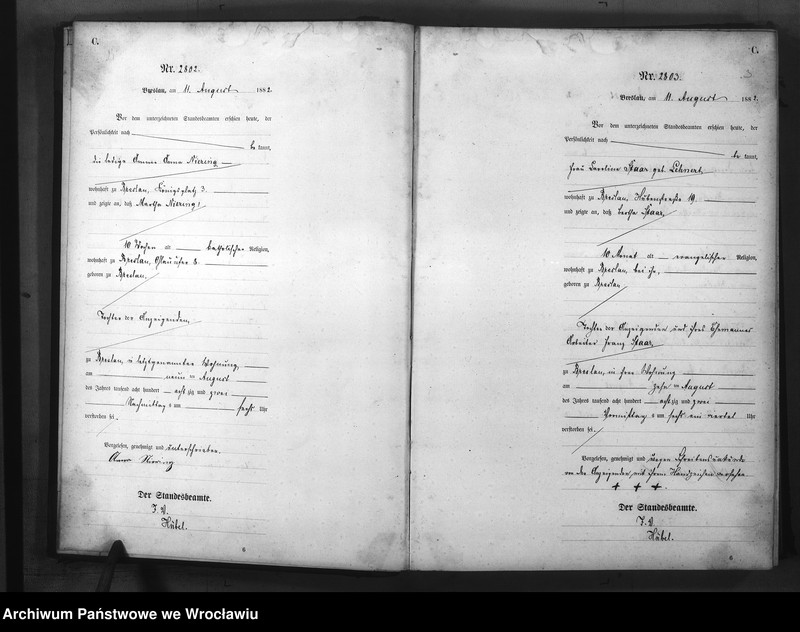 C.
Nr. 2802.
Breslau, am 11. August 1882.
Vor dem unterzeichneten Standesbeamten erschien heute, der
Persönlichkeit nach
be kannt,
die ledige Amme Anna Niering
wohnhaft zu Breslau, Königsplatz 3.
und zeigte an, daß Martha Niering,
10 Wochen alt katholischer Religion,
wohnhaft zu Breslau, Ohlauufer 8.
geboren zu Breslau,
Tochter der Anzeigenden,
zu Breslau, in letztgenannter Wohnung,
am neun ten August
des Jahres tausend acht hundert achtzig und zwei
Nachmittags um sechs Uhr
verstorben sei.
Vorgelesen, genehmigt und unterschrieben.
Anna Niering
Der Standesbeamte.
I. V.
Hübel.
6
C.
Nr. 2803.
Breslau, am 11. August 1882.
Vor dem unterzeichneten Standesbeamten erschien heute, der
Persönlichkeit nach
be kannt,
Frau Karoline Staar geb. Lehnert,
wohnhaft zu Breslau, 19.
und zeigte an, daß Bertha Staar,
10 Monat alt evangelischer Religion,
wohnhaft zu Breslau, bei ihr,
geboren zu Breslau,
Tochter der Anzeigenden und ihres Ehemannes
Arbeiter Franz Staar,
zu Breslau, in ihrer Wohnung
am zehn ten August
des Jahres tausend acht hundert achtzig und zwei
Vormittags um sechs ein viertel Uhr
verstorben sei.
Vorgelesen, genehmigt und wegen Schreibensunkunde
von der Anzeigenden mit ihrem Handzeichen versehen
+ + +.
Der Standesbeamte.
I. V.
Hübel.
6
Archiwum Państwowe we Wrocławiu